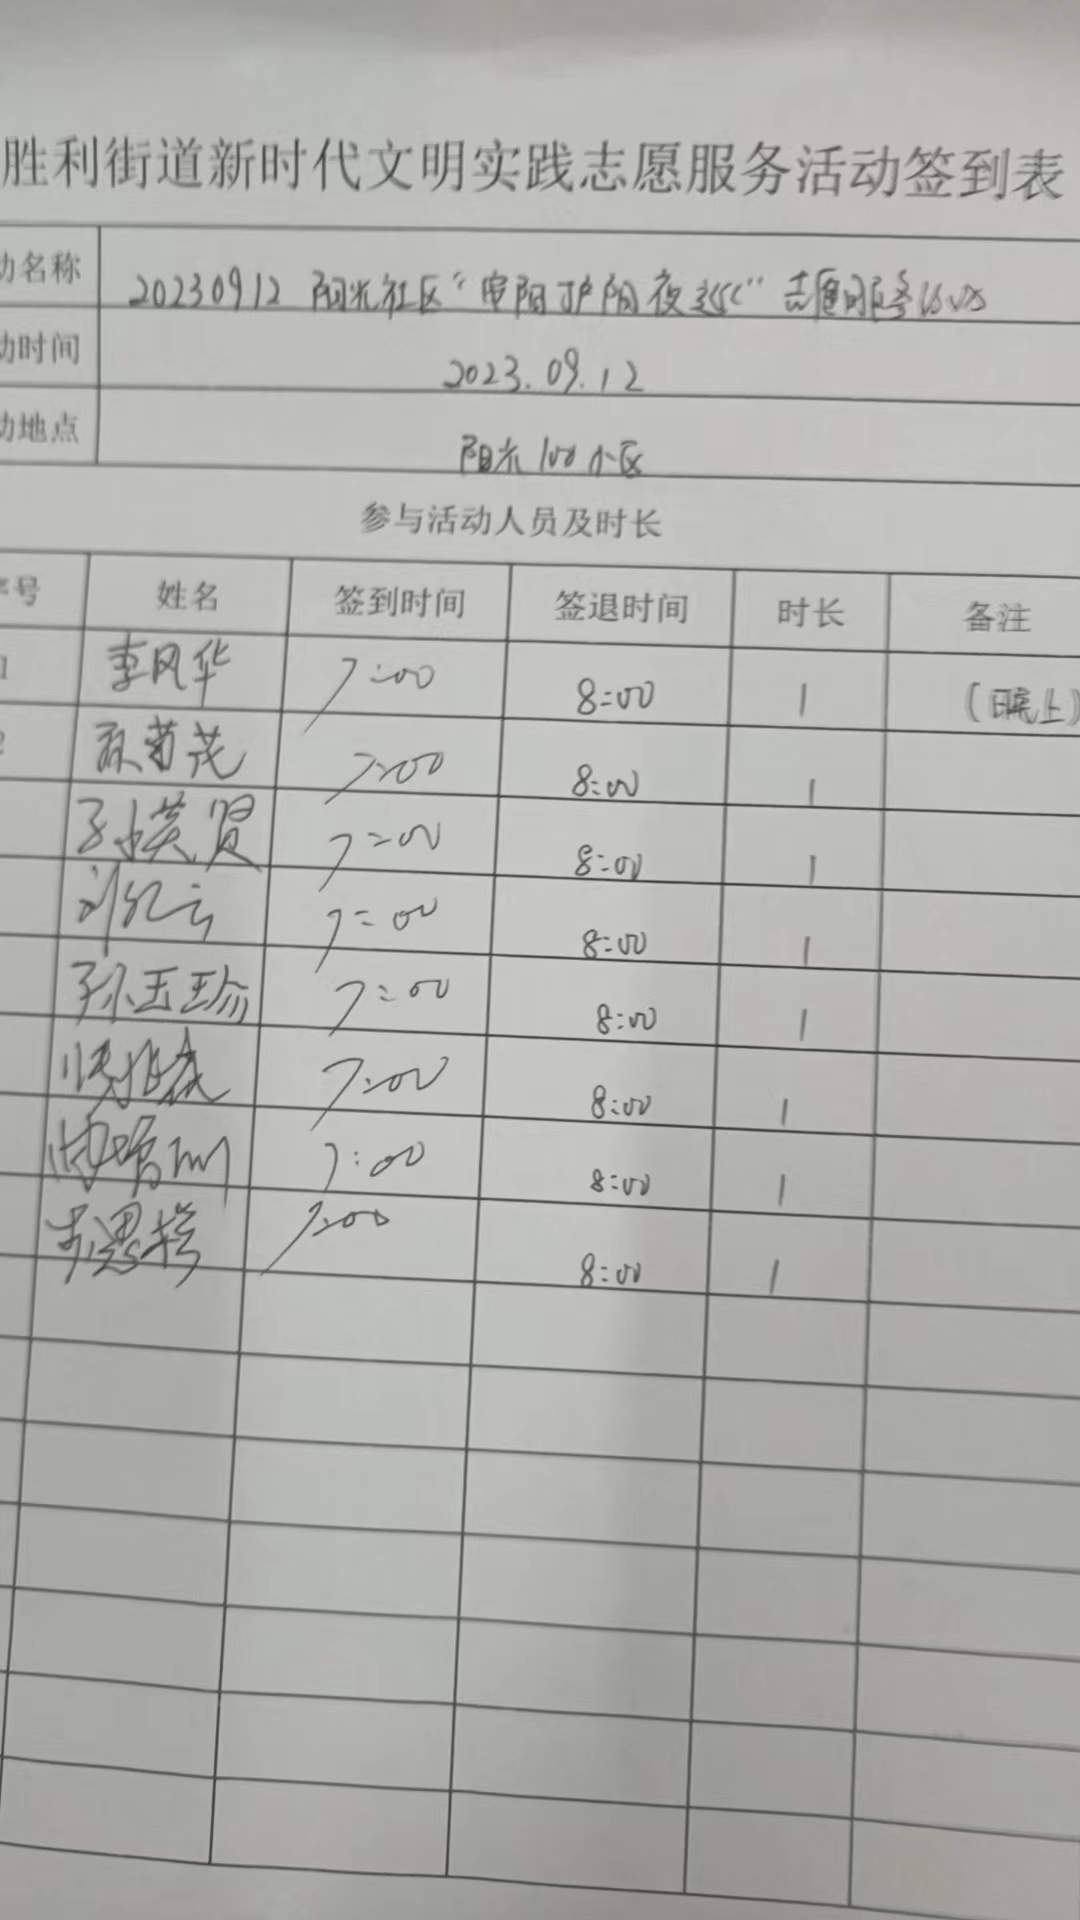 胜利街道新时代文明实践志愿服务活动签到表
动名称 20230912 阳光社区“ 阳护阳夜巡”志愿服务
动时间 2023.09.12
动地点 阳光100小区
参与活动人员及时长
序号 姓名 签到时间 签退时间 时长 备注
1 李风华 7:00 8:00 1 (晚上)
2 菊茂 7:00 8:00 1
孙英贤 7:00 8:00 1
刘红云 7:00 8:00 1
孙玉珍 7:00 8:00 1
7:00 8:00 1
7:00 8:00 1
7:00 8:00 1